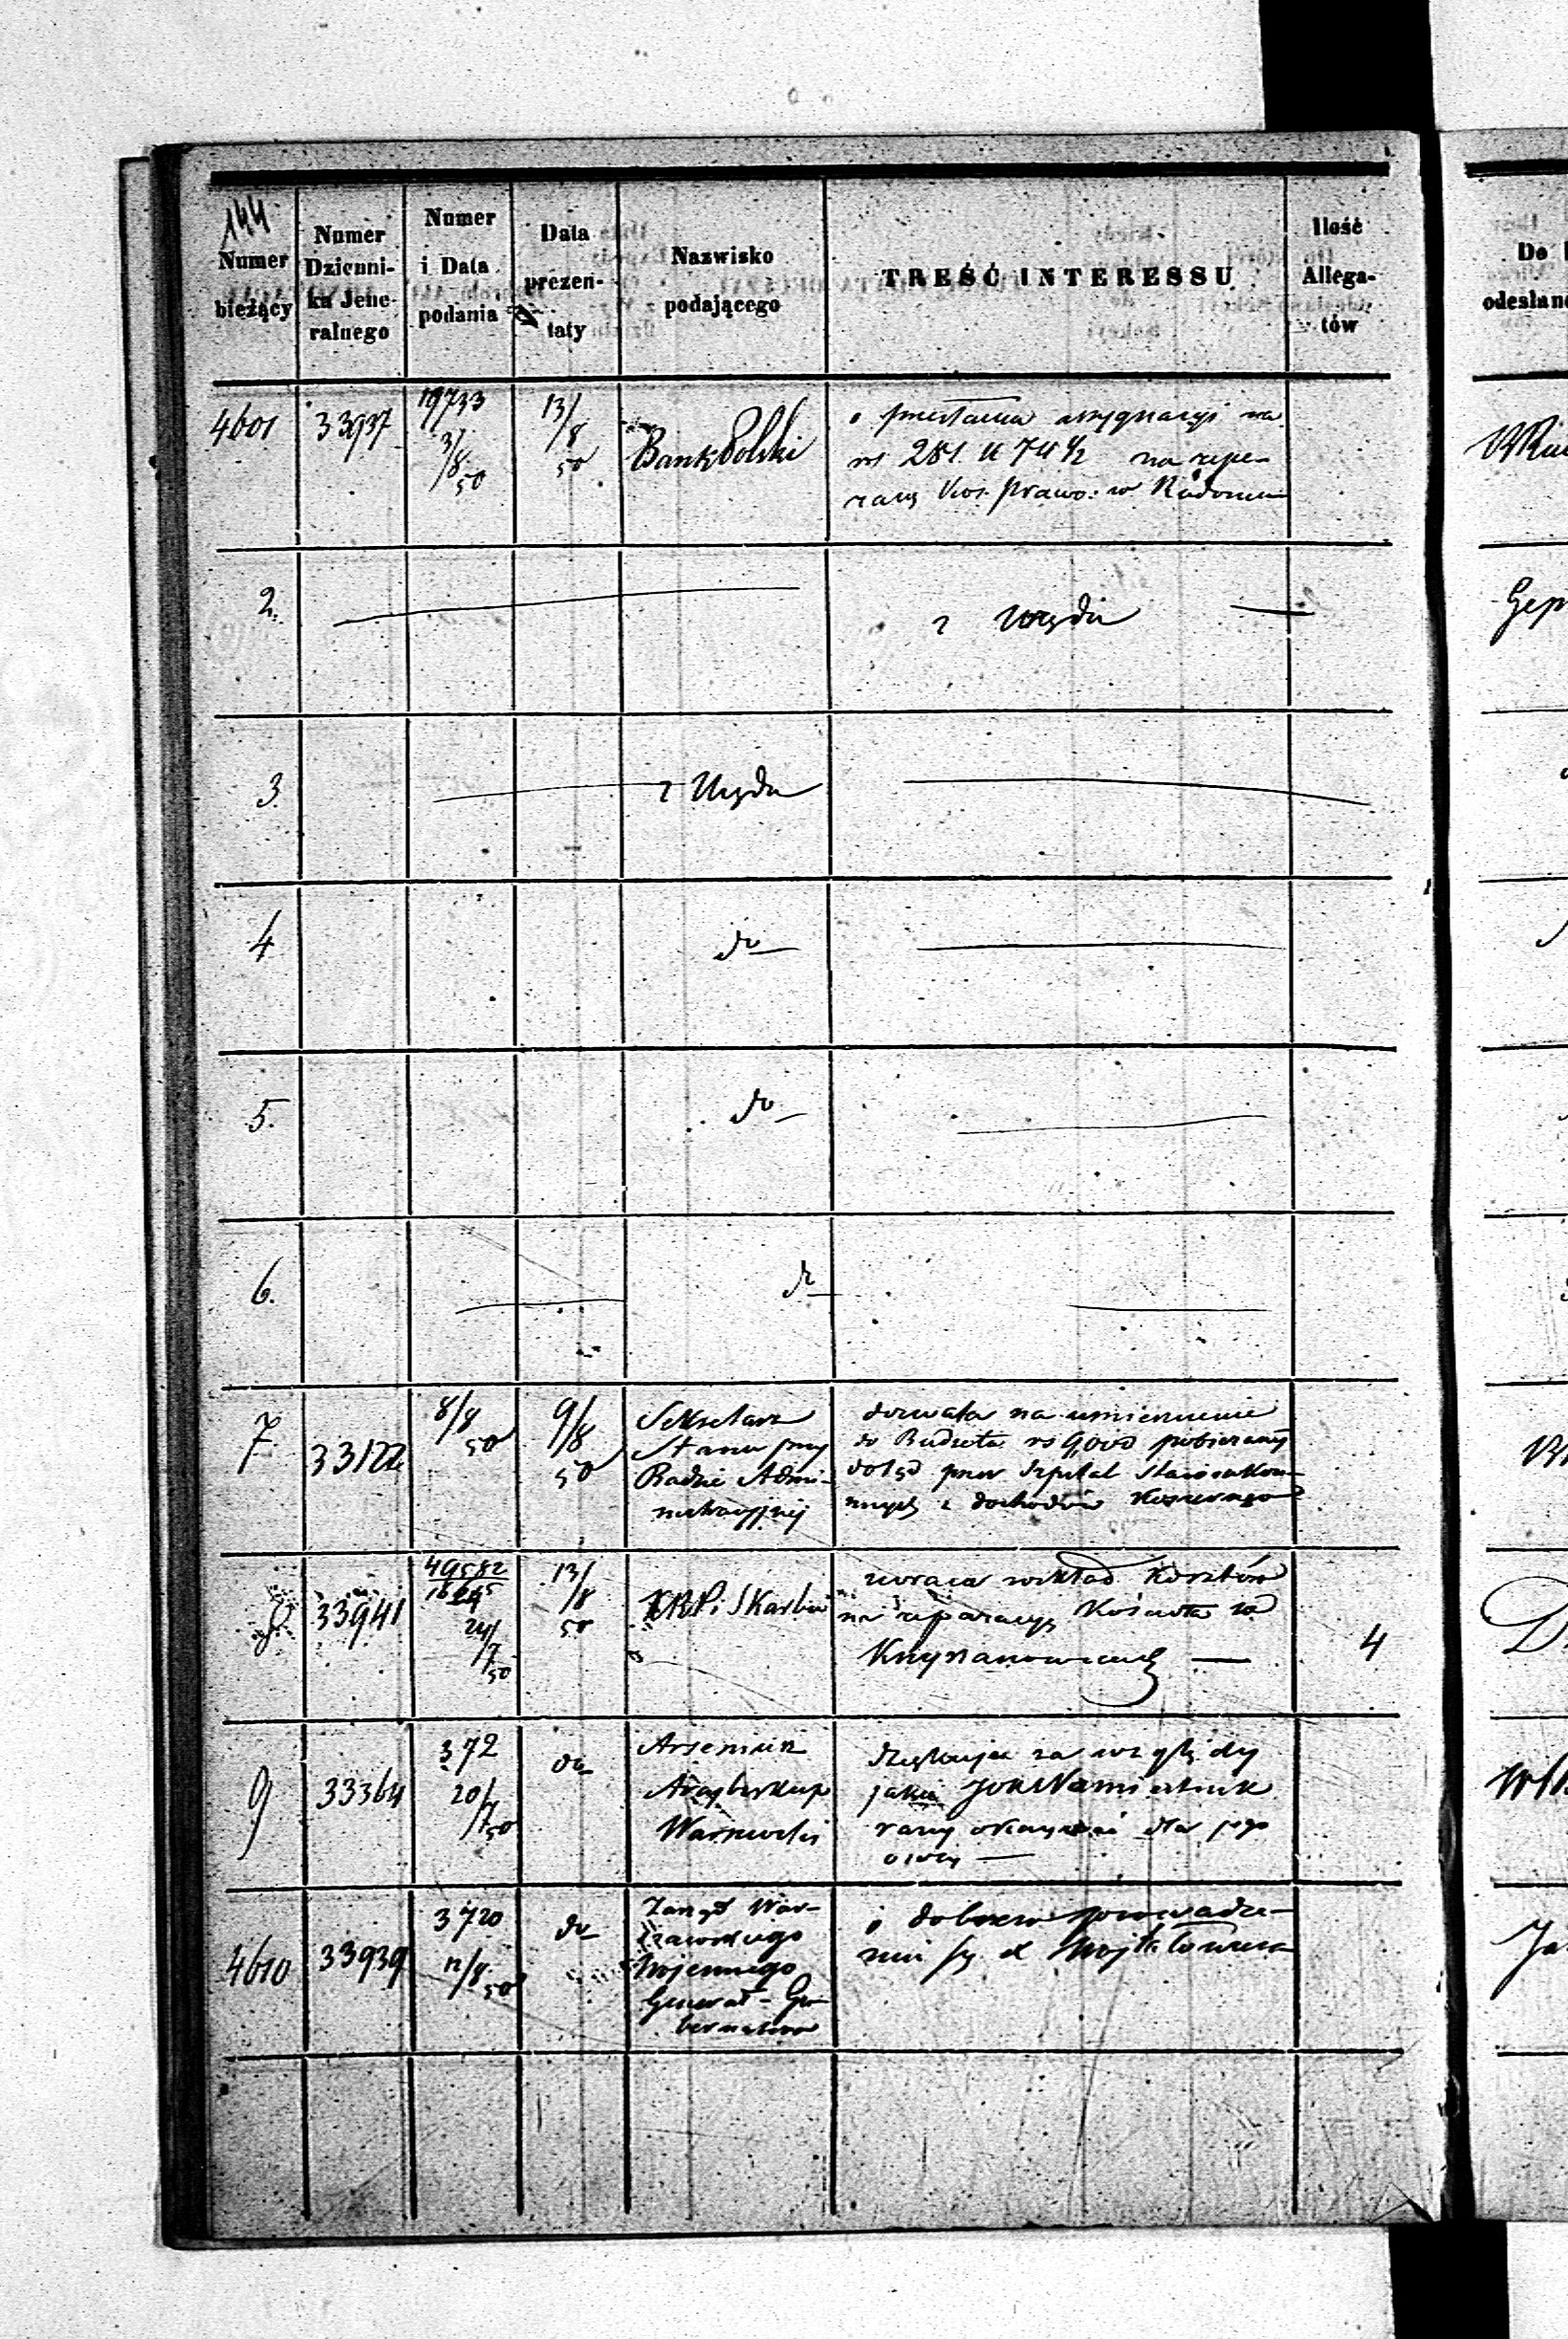 144
Numer bieżący
Numer Dzienni-
ka Jene-
ralnego
Numer
i Data
podania
Data
prezen-
taty
Nazwisko
podającego
TREŚĆ INTERESSU
Ilość
Allega-
tów
Do
odesłan
4601 33937 19733 3/8 50 13/8 50 Bank Polski
o przesłaniu assygnacyi na
rs 281 k 74 1/2 na repe-
racyę Kos. Prawo: w Radomiu
2. z Urzędu
3. z Urzędu
4 do
5. do
6. do
7. 33122 8/8 50 9/8 50
Sekretarz
Stanu przy
Radzie Admi-
nistracyjnej
zezwala na umieszczenie
do Budżetu rs 9,000
dotąd przez Szpital
z dochodów
8. 33941 49582 24/7 50 13/8 50 KRPiSkarbu
zwraca rozkład kosztów
na reparacyę Kościoła w
4
9 33364 372 20/7 50 do
Arseniusz
Arcybiskup
Warszawski
dziękuje za względy
jakie JOXNamiestnik
raczy okazywać dla jego
4610 33939 3720 12/8 50 do
Zarząd War-
szawskiego
Wojennego
Generał-Gu-
bernatora
o dobrem prowadze-
niu się